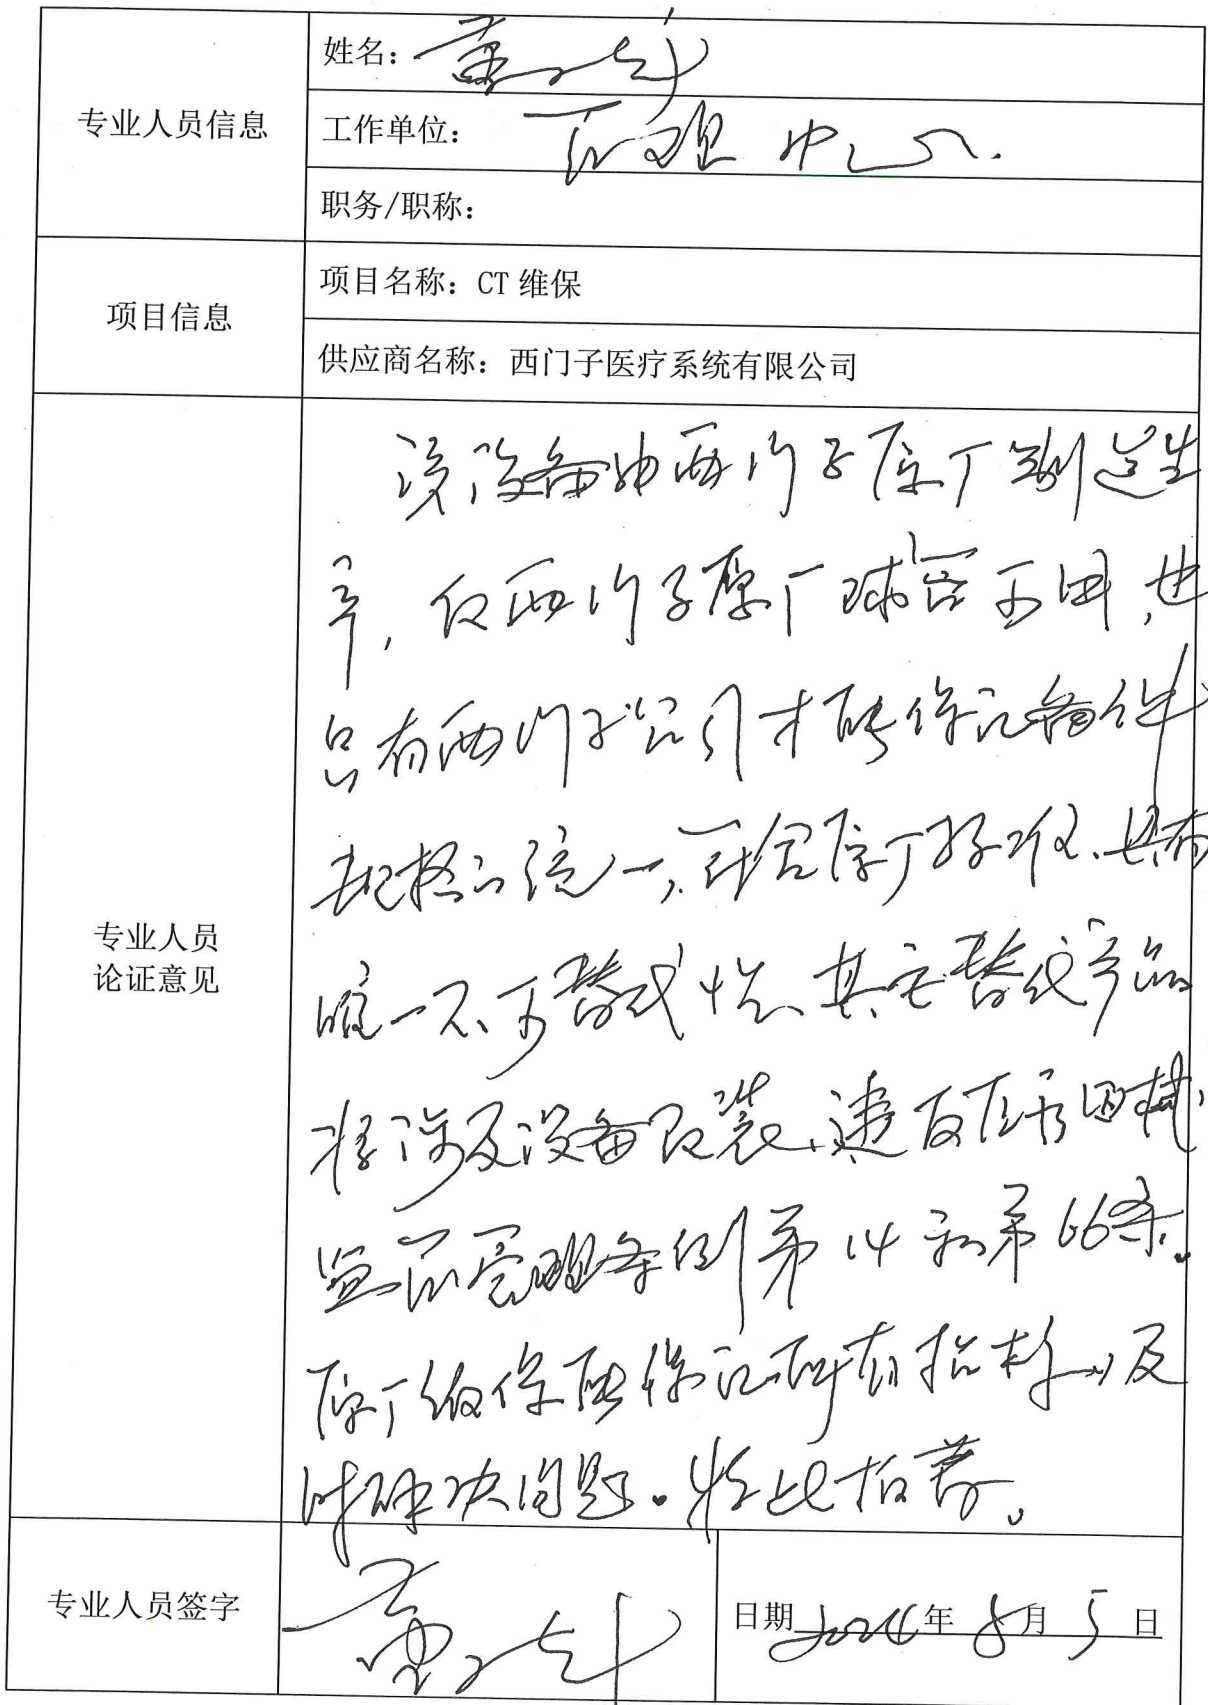 专业人员信息
姓名:
工作单位: 中心.
职务/职称:
项目信息
项目名称: CT 维保
供应商名称: 西门子医疗系统有限公司
专业人员
论证意见
该设备由西门子原厂制造生
产, 仅西门子原厂球管可用, 也
只有西门子公司才能保证备件
规格的统一, 符合原厂标准、具有
唯一不可替代性、其它替代产品
将涉及设备改装、违反医疗器械
监督管理条例第14和第66条。
原厂维保能保证所有指标以及
时解决问题。特此推荐。
专业人员签字
日期 2024年 8月 5日